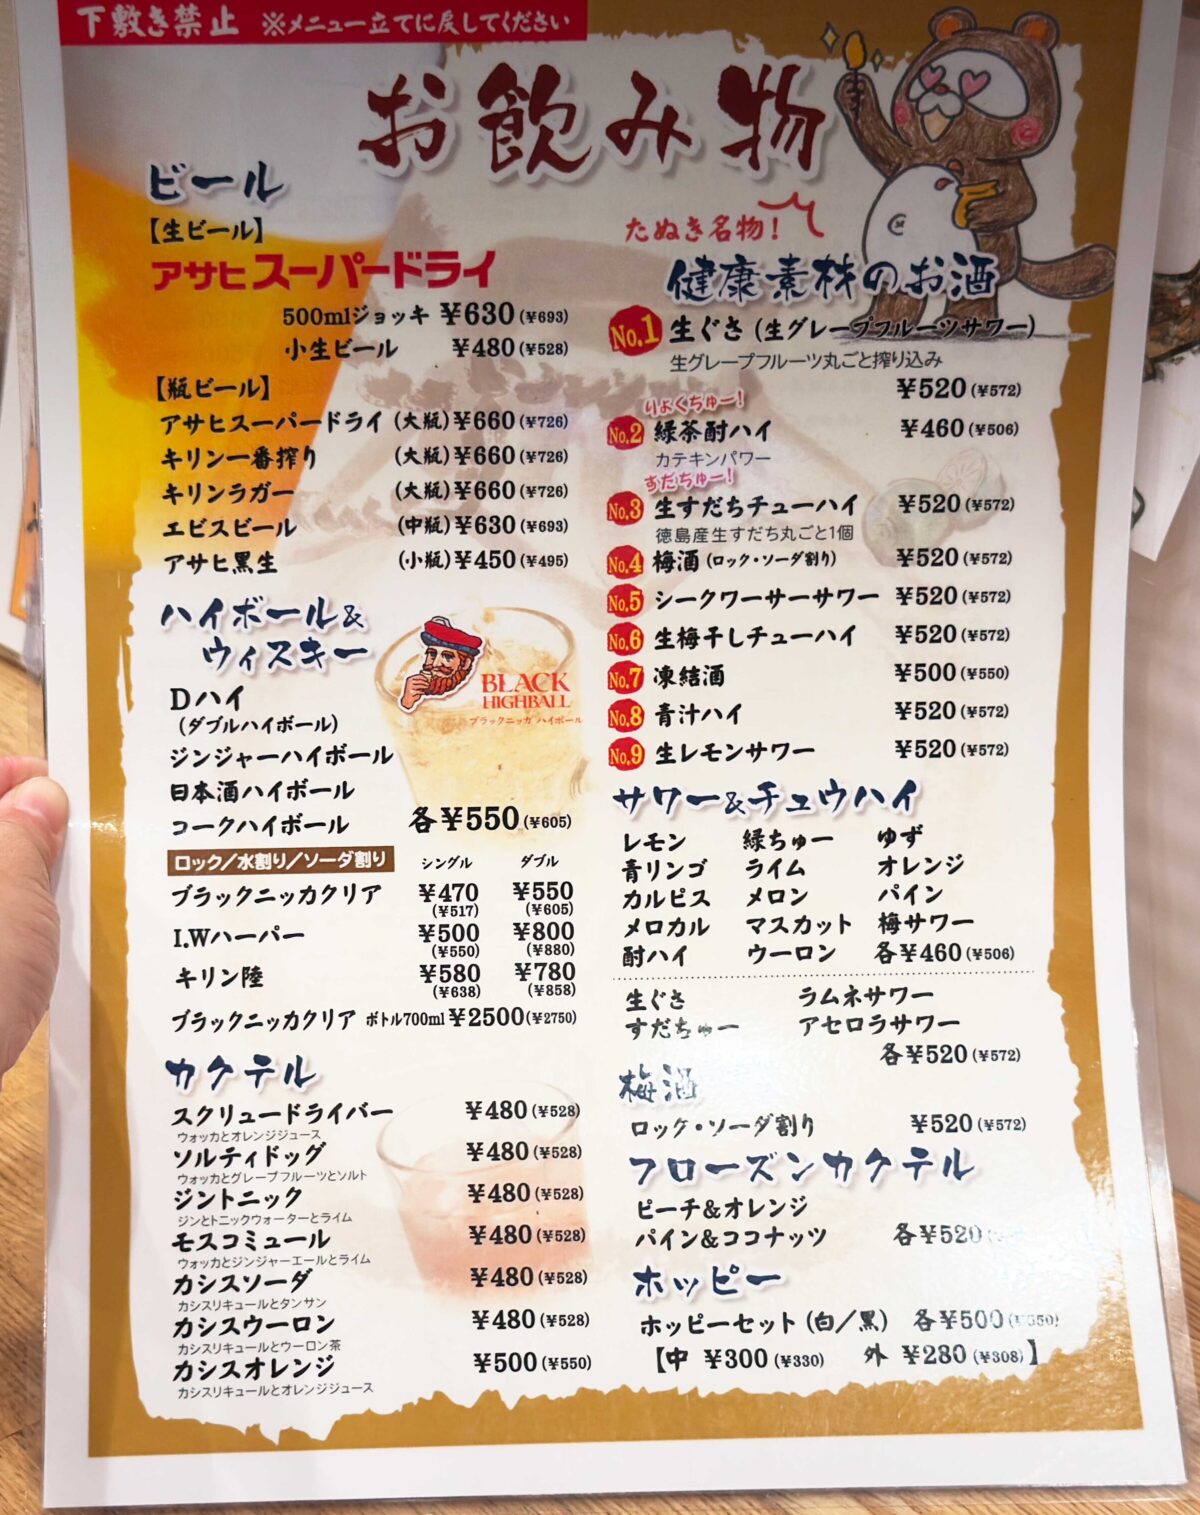 下敷き禁止 ※メニュー立てに戻してください
お飲み物
ビール
【生ビール】
アサヒスーパードライ
500mlジョッキ ¥630(¥693)
小生ビール ¥480(¥528)
【瓶ビール】
アサヒスーパードライ (大瓶)¥660(¥726)
キリン一番搾り (大瓶)¥660(¥726)
キリンラガー (大瓶)¥660(¥726)
エビスビール (中瓶)¥630(¥693)
アサヒ黒生 (小瓶)¥450(¥495)
ハイボール&
ウィスキー
BLACK
HIGHBALL
ブラックニッカ ハイボール
Dハイ
(ダブルハイボール)
ジンジャーハイボール
日本酒ハイボール
コークハイボール 各¥550(¥605)
ロック/水割り/ソーダ割り シングル ダブル
ブラックニッカクリア ¥470 ¥550
(¥517) (¥605)
I.Wハーパー ¥500 ¥800
(¥550) (¥880)
キリン陸 ¥580 ¥780
(¥638) (¥858)
ブラックニッカクリア ボトル700ml ¥2500(¥2750)
カクテル
スクリュードライバー ¥480(¥528)
ウォッカとオレンジジュース
ソルティドッグ ¥480(¥528)
ウォッカとグレープフルーツとソルト
ジントニック ¥480(¥528)
ジンとトニックウォーターとライム
モスコミュール ¥480(¥528)
ウォッカとジンジャーエールとライム
カシスソーダ ¥480(¥528)
カシスリキュールとタンサン
カシスウーロン ¥480(¥528)
カシスリキュールとウーロン茶
カシスオレンジ ¥500(¥550)
カシスリキュールとオレンジジュース
たぬき名物!
健康素材のお酒
No.1 生ぐさ(生グレープフルーツサワー)
生グレープフルーツ丸ごと搾り込み
¥520(¥572)
りょくちゅー!
No.2 緑茶酎ハイ ¥460(¥506)
カテキンパワー
すだちゅー!
No.3 生すだちチューハイ ¥520(¥572)
徳島産生すだち丸ごと1個
No.4 梅酒(ロック・ソーダ割り) ¥520(¥572)
No.5 シークワーサーサワー ¥520(¥572)
No.6 生梅干しチューハイ ¥520(¥572)
No.7 凍結酒 ¥500(¥550)
No.8 青汁ハイ ¥520(¥572)
No.9 生レモンサワー ¥520(¥572)
サワー&チュウハイ
レモン 緑ちゅー ゆず
青リンゴ ライム オレンジ
カルピス メロン パイン
メロカル マスカット 梅サワー
酎ハイ ウーロン 各¥460(¥506)
生ぐさ ラムネサワー
すだちゅー アセロラサワー
各¥520(¥572)
梅酒
ロック・ソーダ割り ¥520(¥572)
フローズンカクテル
ピーチ&オレンジ
パイン&ココナッツ 各¥520
ホッピー
ホッピーセット(白/黒) 各¥500(¥550)
【中 ¥300(¥330) 外 ¥280(¥308)】